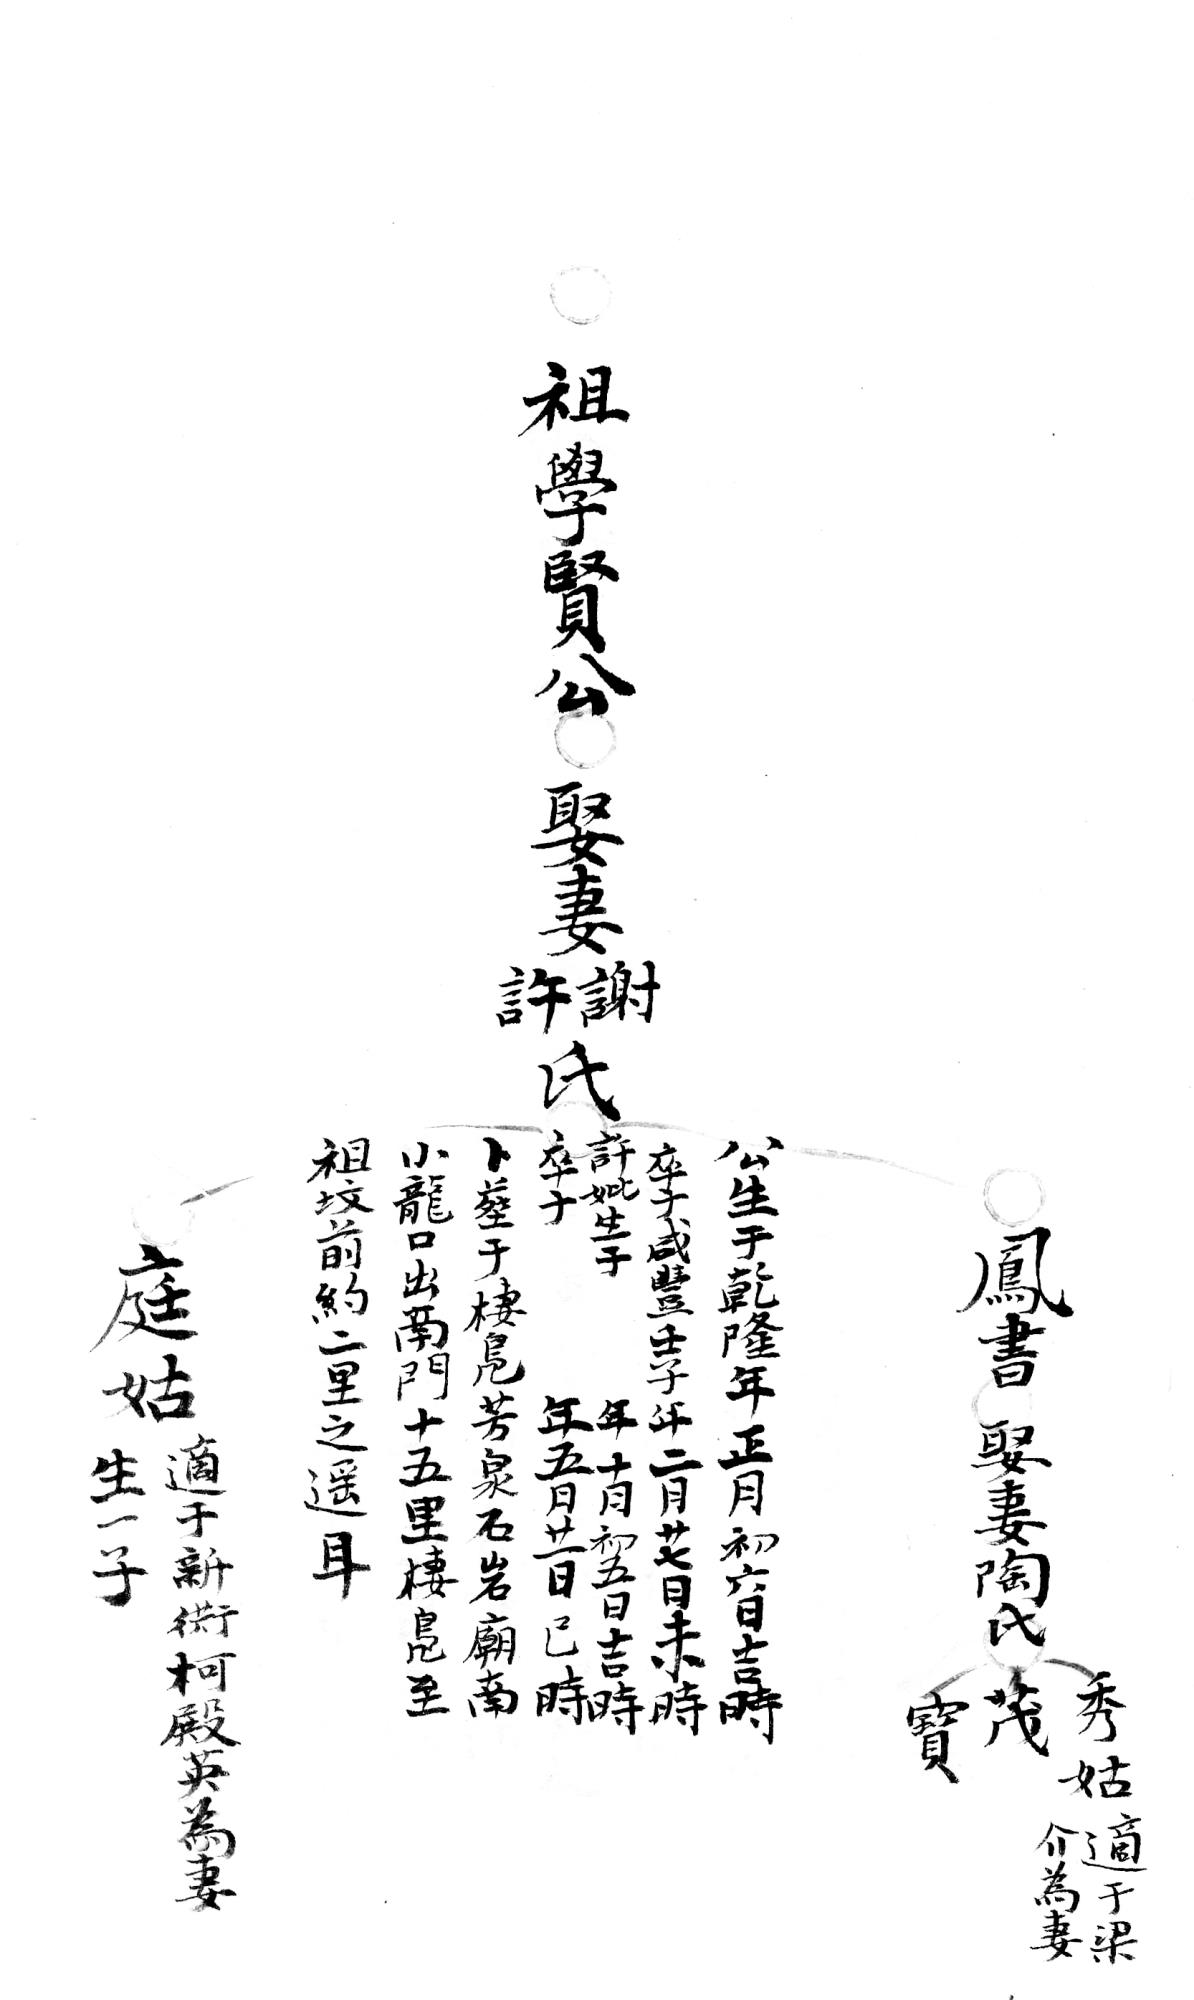 祖學賢公
娶妻謝許氏
公生于乾隆年正月初六日吉時
卒于咸豐壬子年二月廿七日未時
許妣生于 年十月初五日吉時
卒于 年五月廿一日巳時
卜塟于棲鳧芳泉石岩廟南
小龍口出南門十五里棲鳧至
祖坟前約二里之遥耳
鳳書娶妻陶氏
秀姑
適于梁
介為妻
茂
寶
庭姑
適于新衖柯殿英為妻
生一子